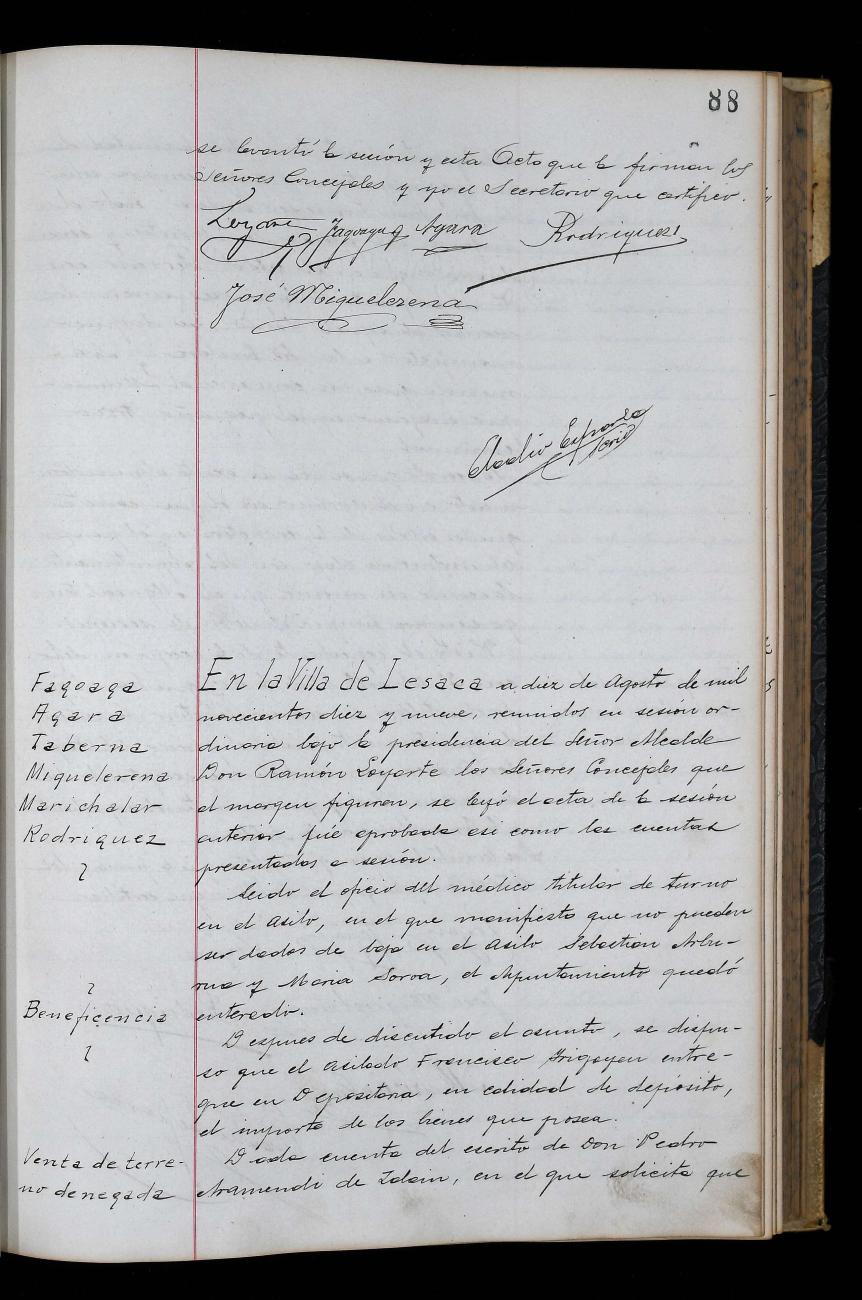 88
se levantó la sesión y esta Acta que la firman los
Señores Concejales y yo el Secretario que certifico.
Loyarte Fagoaga Agara Rodriguez
José Miguelerena
Eladio Esparza
Srio
Fagoaga
Agara
Taberna
Miguelerena
Marichalar
Rodriguez
En la Villa de Lesaca a diez de Agosto de mil
novecientos diez y nueve, reunidos en sesión or-
dinaria bajo la presidencia del Señor Alcalde
Don Ramón Loyarte los Señores Concejales que
al margen figuran, se leyó el acta de la sesión
anterior fué aprobada asi como las cuentas
presentadas a sesión.
Leido el oficio del médico titular de turno
en el Asilo, en el que manifiesta que no pueden
ser dados de baja en el Asilo Sebastian Arbu-
rua y Maria Soroa, el Ayuntamiento quedó
enterado.
Beneficencia
Despues de discutido el asunto, se dispu-
so que el asilado Francisco Irigoyen entre-
gue en Depositaria, en calidad de depósito,
el importe de los bienes que posea.
Venta de terre-
no denegada
Dada cuenta del escrito de Don Pedro
Aramendi de Zalain, en el que solicita que